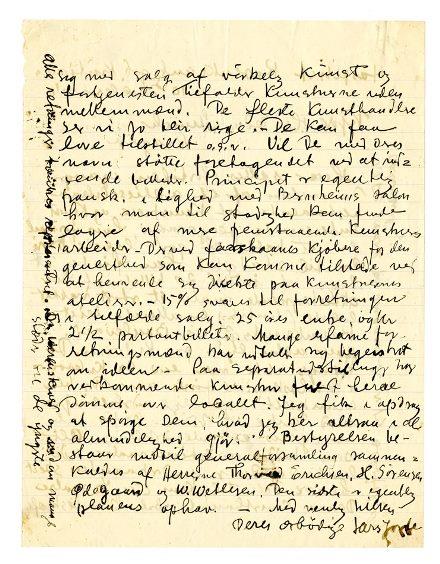 sig med salg af virkelig Kunst og
fortjenesten tilfalder Kunstnerne uden
mellemmænd. De fleste Kunsthandlere
ser vi jo blir rige. – De kan faa
love tilstillet o.s.v. Vil De med Deres
navn støtte foretagendet ved at
sende billeder. Principet er egentlig
fransk. i lighed med Bernheims salon
hvor man til stadighed kan finde
af mere fremstaaende Kunstneres
arbeider – Derved Kjøbere for den
generthed som kan komme tilstede ved
at henvende sig direkte paa Kunstnernes
atelier. – 15% svares til forretningen
i tilfælde salg. 25 øres entre, og kr
2½ partoutbillets. Mange erfarne for
retningsmænd har udtalt sig begeistret
om ideen – Paa separatudstilling har
vedkommende kunstner fuldt herre
dømme over localet. Jeg fik i opdrag
at spørge Dem, hvad jeg her altsaa i al
almindelighed gjør. Bestyrelsen be-
staar indtil generalforsamling sammen-
kaldes af Herrerne Thorvald Erichsen, H. Sørensen
Ødegaard og W. Wetlesen. Den sidste er egentlig
planens ophav. – Med venlig hilsen
Deres ærbødige Lars Jorde
alle retninger
støtte til de yngste